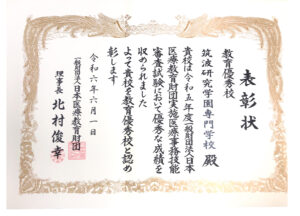 表彰状
教育優秀校
筑波研究学園専門学校 殿
貴校は令和五年度一般財団法人日本
医療教育財団実施医療事務技能
審査試験において優秀な成績を
収められました
よって貴校を教育優秀校と認め
表彰します
令和六年六月一日
一般財団法人日本医療教育財団
理事長 北村俊幸